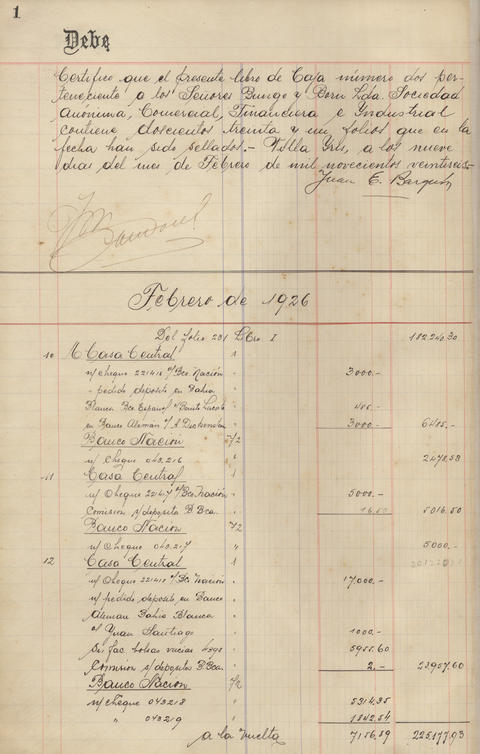 1
Debe
Certifico que el presente libro de Caja número dos per-
teneciente a los Señores Bunge y Born Ltda. Sociedad
Anónima, Comercial, Financiera e Industrial
contiene doscientos treinta y un folios que en la
fecha han sido sellados.- Villa Iris, a los nueve
dias del mes de Febrero de mil novecientos veintiseis.-
Juan E.
Febrero de 1926
Del folio 231 Libro I 182240.30
10 A Casa Central 1
n/ cheque 221416 c/ Bco. Nación " 3000.-
" pedido deposito en Bahia "
Blanca Bco Español " 405.-
en Banco Alemán " 3000.- 6405.-
Banco Nación 72
n/ cheque 043216 " 2478.58
11 Casa Central 1
n/ cheque 22147 c/ Bco. Nación " 5000.-
Comision s/ deposito B Bca. " 16.50 5016.50
Banco Nación 72
n/ cheque 043217 " 5000.-
12 Casa Central 1
n/ cheque 221418 c/ Bco. Nación " 17000.-
n/ pedido deposito en Banco "
Aleman Bahia Blanca "
o/ Juan Santiago " 1000.-
Su fac. bolsas vacias 4395 " 5955.60
Comision s/ depositos B Bca. " 2.- 23957.60
Banco Nación 72
n/ cheque 043218 " 5314.35
" 043219 " 1842.54
a la vuelta 7156.89 225177.93